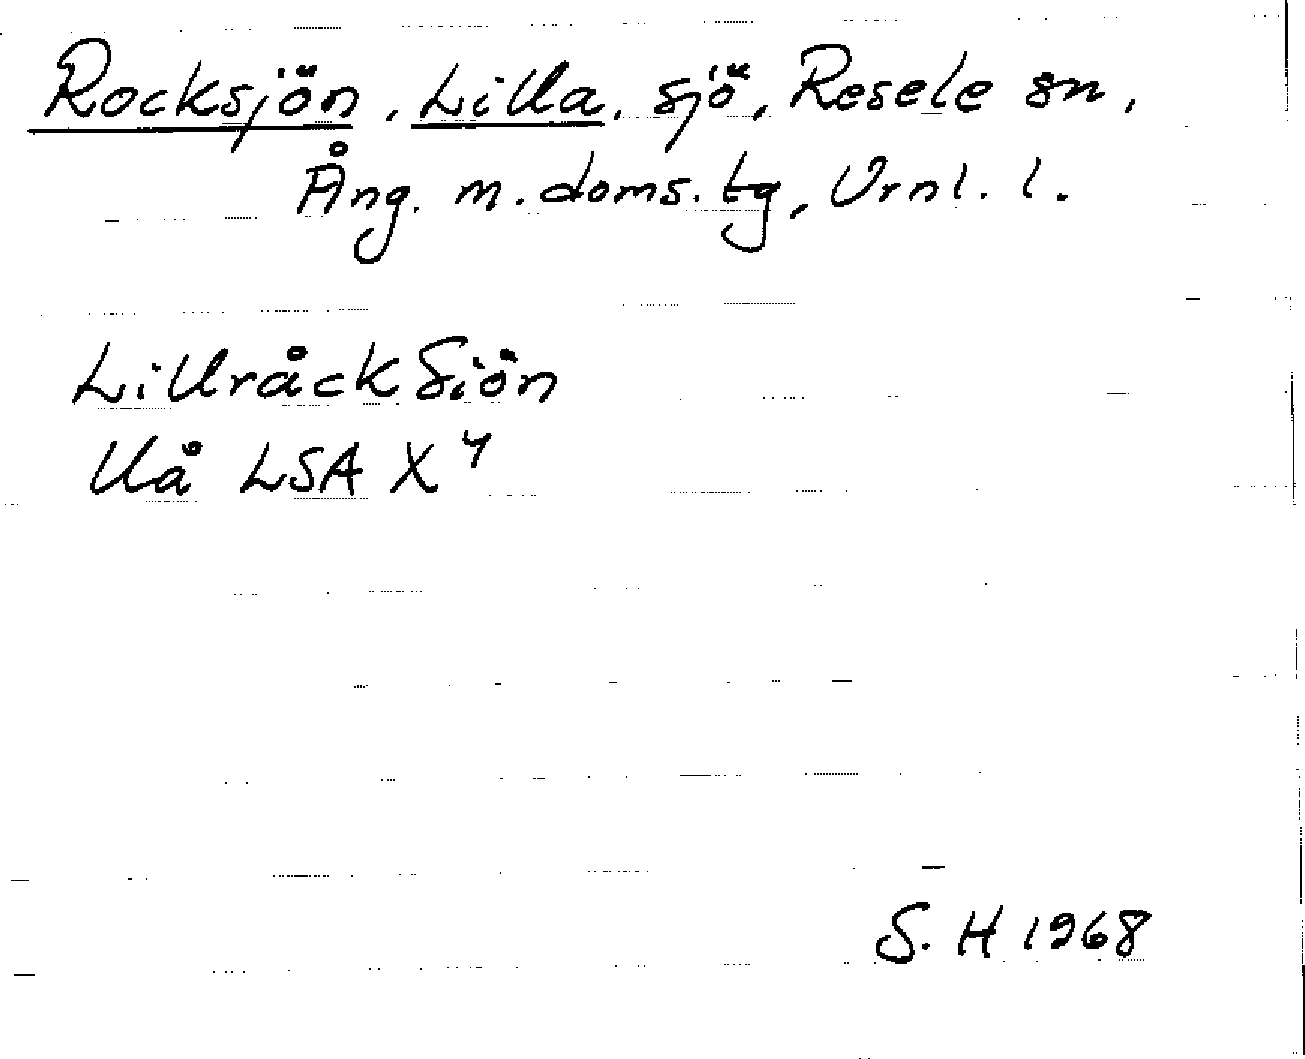 Rocksjön, Lilla, sjö, Resele sn,
Ång. m. doms. tg, Vrnl. l.
Lillråck Siön
Uå LSA X 4
S. H 1968